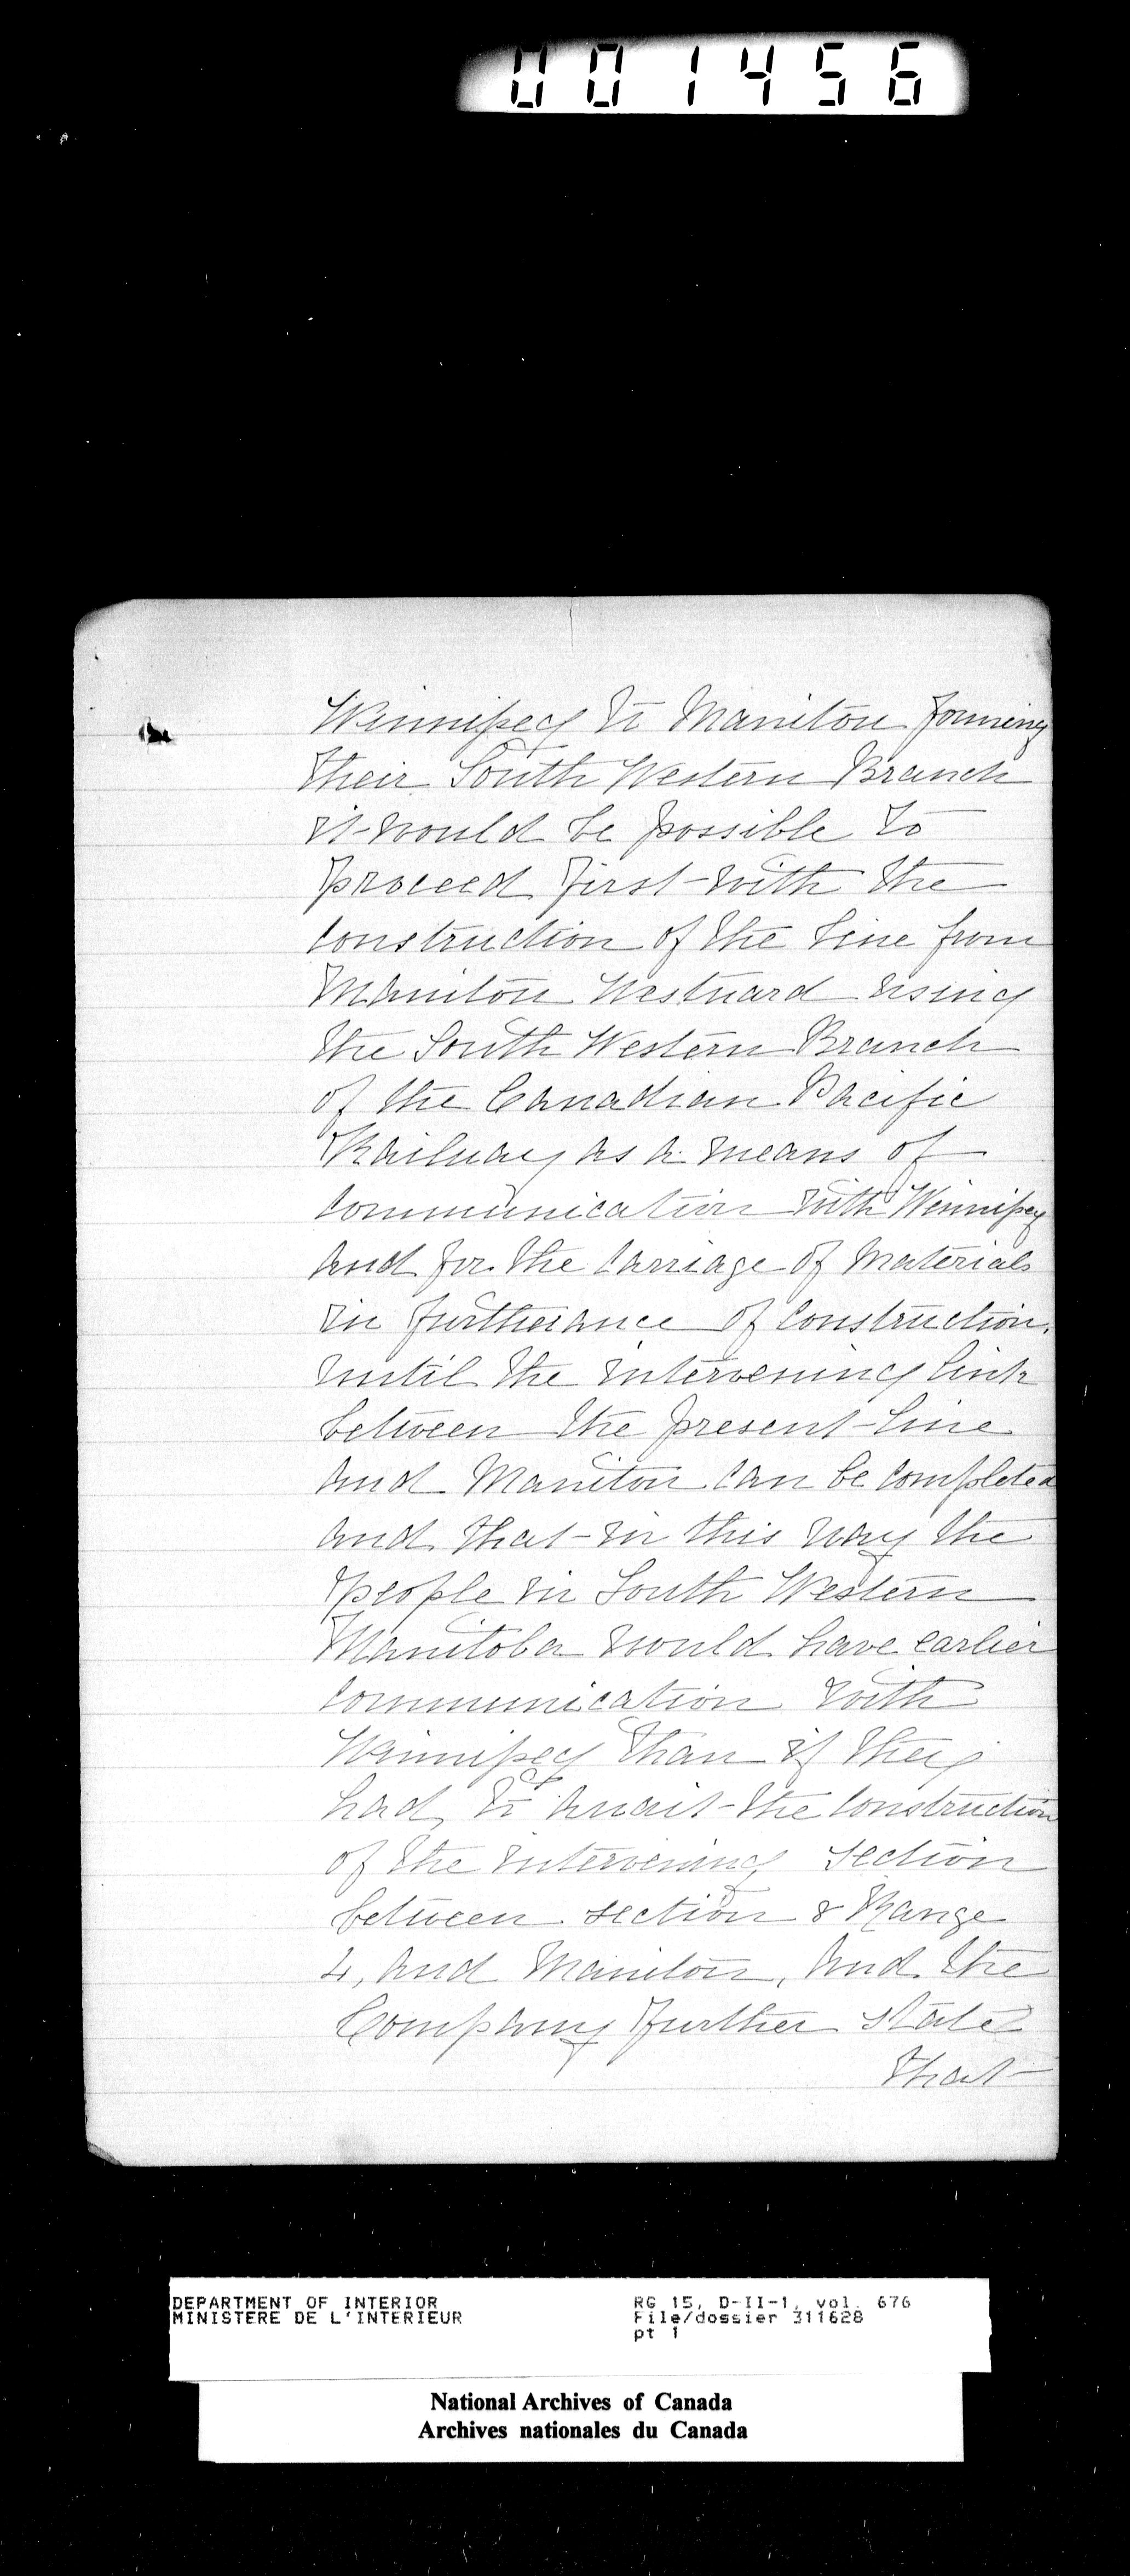 001456
Winnipeg to Manitou forming
their South Western Branch
it would be possible to
proceed first with the
construction of the line from
Manitou Westward using
the South Western Branch
of the Canadian Pacific
Railway as a means of
communication with Winnipeg
and for the carriage of materials
in furtherance of construction,
until the intervening link
between the present line
and Manitou can be completed
and that in this way the
people in South Western
Manitoba would have earlier
communication with
Winnipeg than if they
had to await the construction
of the intervening section
between section & Range
4, and Manitou, and the
Company further state
that
DEPARTMENT OF INTERIOR
MINISTERE DE L'INTERIEUR
RG 15, D-II-1, vol. 676
File/dossier 311628
pt 1
National Archives of Canada
Archives nationales du Canada